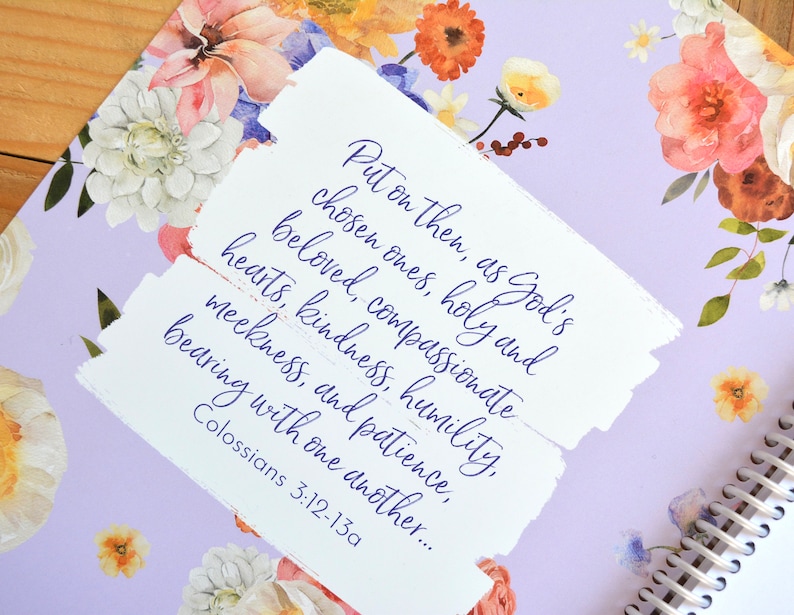 Put on then, as God's
chosen ones, holy and
beloved, compassionate
hearts, kindness, humility,
meekness, and patience,
bearing with one another...
Colossians 3:12-13a